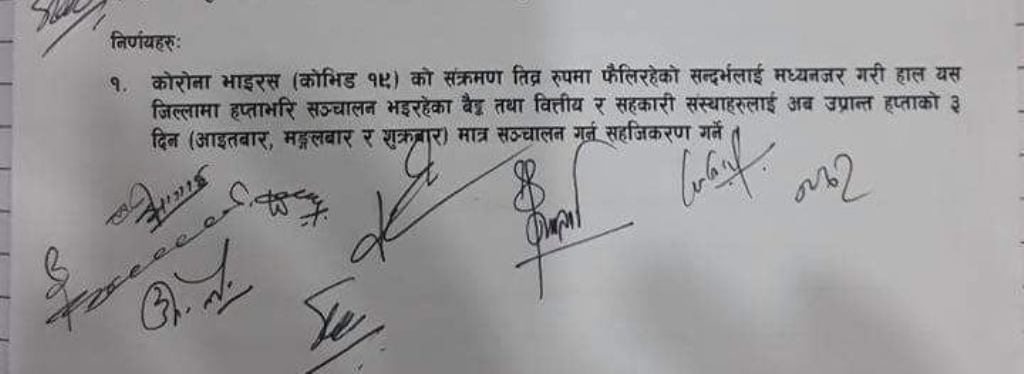 निर्णयहरुः
१. कोरोना भाइरस (कोभिड १९) को संक्रमण तिव्र रुपमा फैलिरहेको सन्दर्भलाई मध्यनजर गरी हाल यस
जिल्लामा हप्ताभरि सञ्चालन भइरहेका बैङ्क तथा वित्तीय र सहकारी संस्थाहरुलाई अब उप्रान्त हप्ताको ३
दिन (आइतबार, मङ्गलबार र शुक्रबार) मात्र सञ्चालन गर्न सहजिकरण गर्ने ।